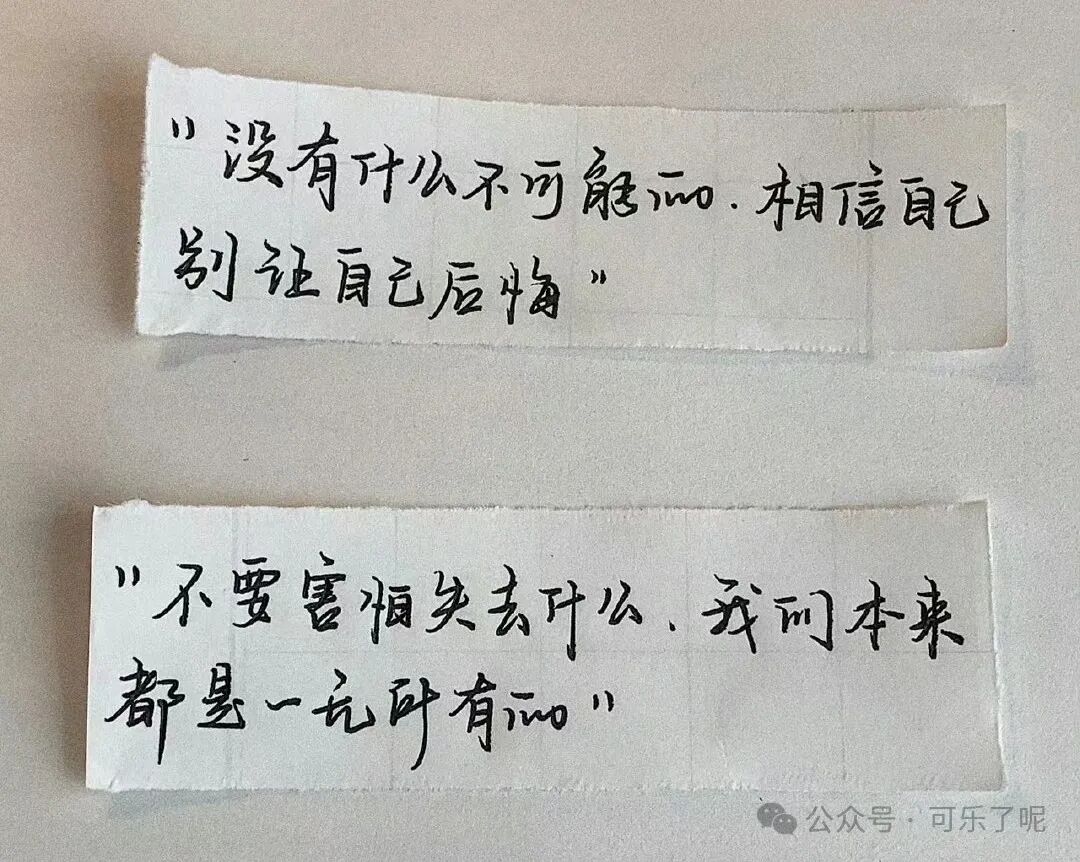 "没有什么不可能的.相信自己
别让自己后悔"
"不要害怕失去什么、我们本来
都是一无所有的"
公众号·可乐了呢